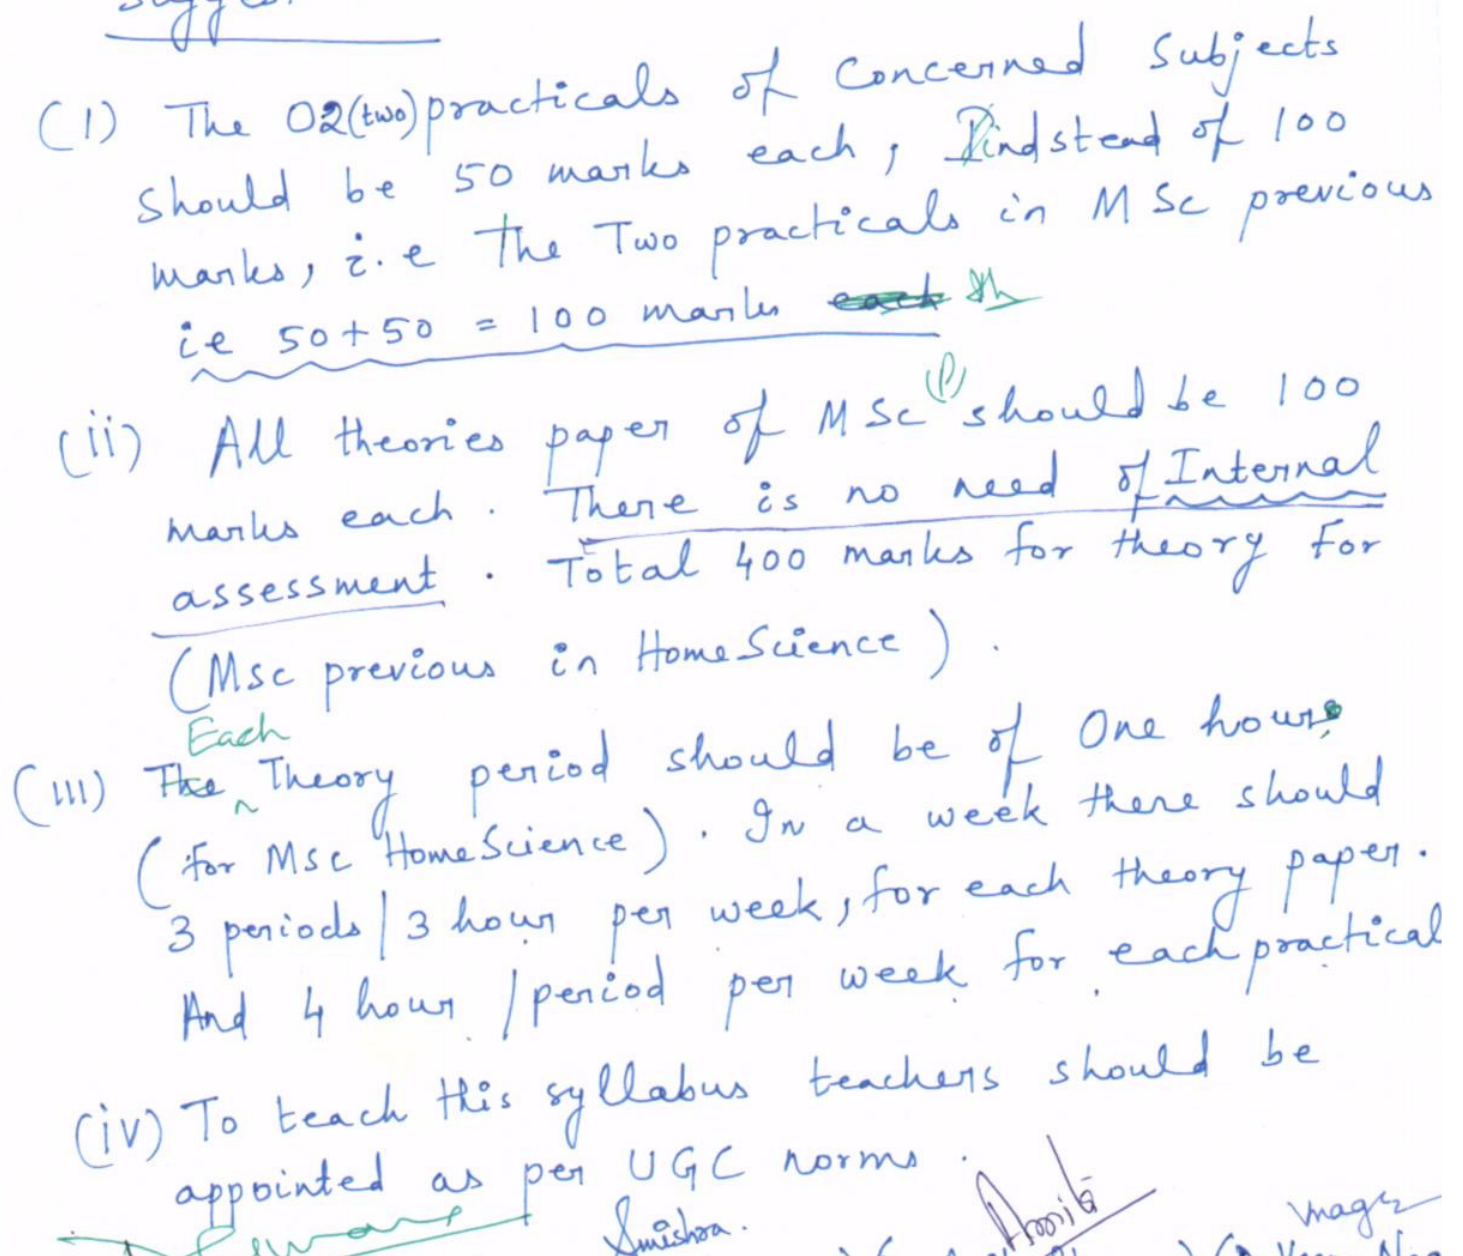 (1) The 02(two) practicals of Concerned Subjects
should be 50 marks each, indstead of 100
marks, i.e The Two practicals in MSc previous
ie 50+50 = 100 marks each
(ii) All theories paper of MSc (P) should be 100
marks each. There is no need of Internal
assessment. Total 400 marks for theory for
(Msc previous in Home Science).
Each
(iii) The Theory period should be of One hour
(for Msc Home Science). In a week there should
3 periods/3 hour per week, for each theory paper.
And 4 hour/period per week for each practical
(iv) To teach this syllabus teachers should be
appointed as per UGC norms.
Smishra. Amita